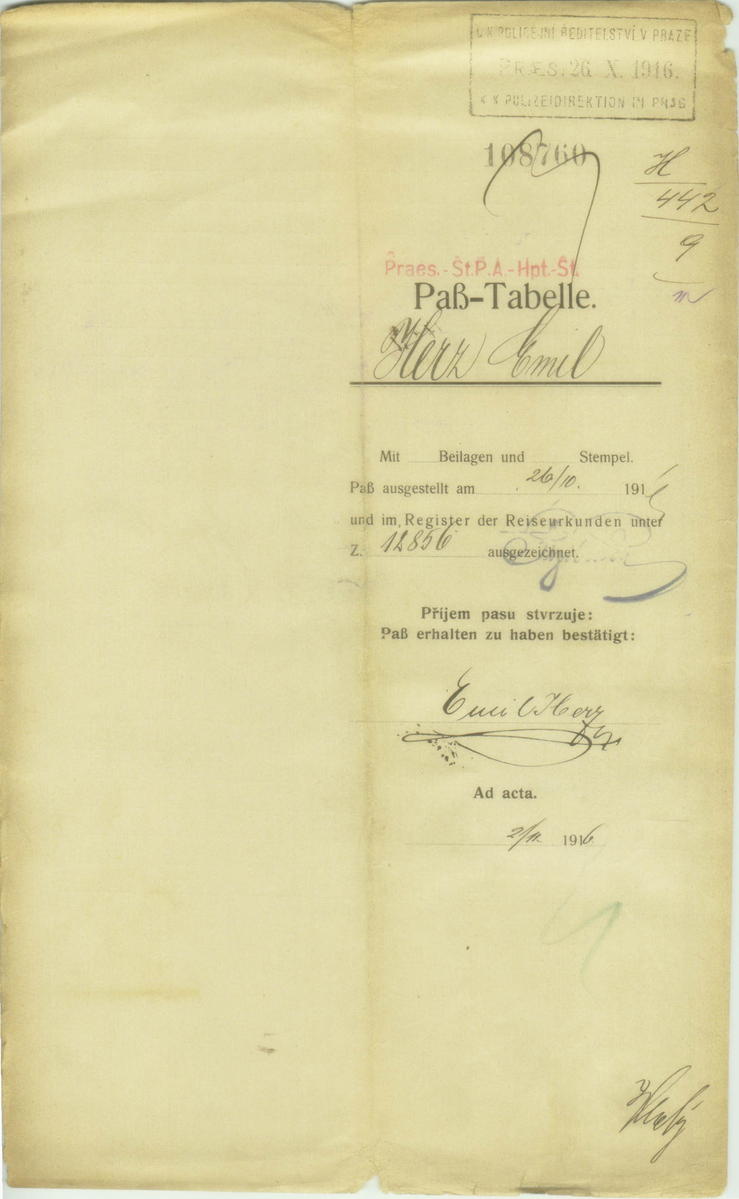 C. K. POLICEJNÍ ŘEDITELSTVÍ V PRAZE
PRÆS. 26. X. 1916.
K. K. POLIZEIDIREKTION IN PRAG
108760
H
442
9
Praes.-St.P.A.-Hpt.-St.
Paß-Tabelle.
Herz Emil
Mit Beilagen und Stempel.
Paß ausgestellt am 26/10. 1916
und im Register der Reiseurkunden unter
Z. 12856 ausgezeichnet.
Příjem pasu stvrzuje:
Paß erhalten zu haben bestätigt:
Emil Herz
Ad acta.
2/11. 1916